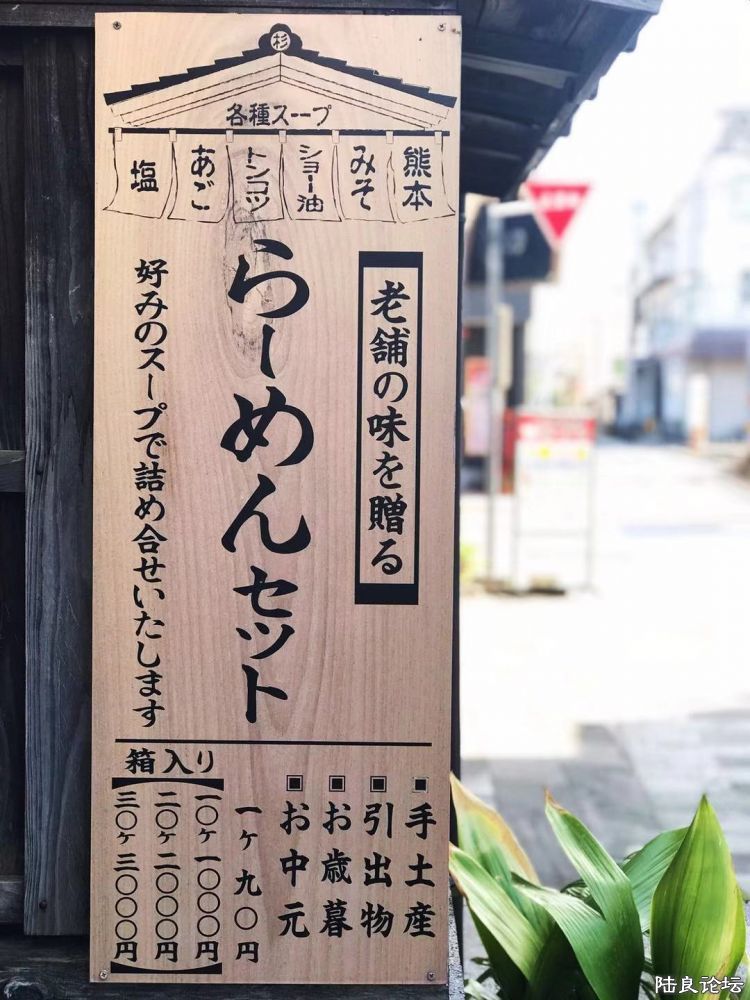 杉
各種スープ
熊本
みそ
ショー油
トンコツ
あご
塩
老舗の味を贈る
らーめんセット
好みのスープで詰め合せいたします
手土産
引出物
お歳暮
お中元
一ヶ九〇円
箱入り
一〇ヶ一〇〇〇円
二〇ヶ二〇〇〇円
三〇ヶ三〇〇〇円
陆良论坛